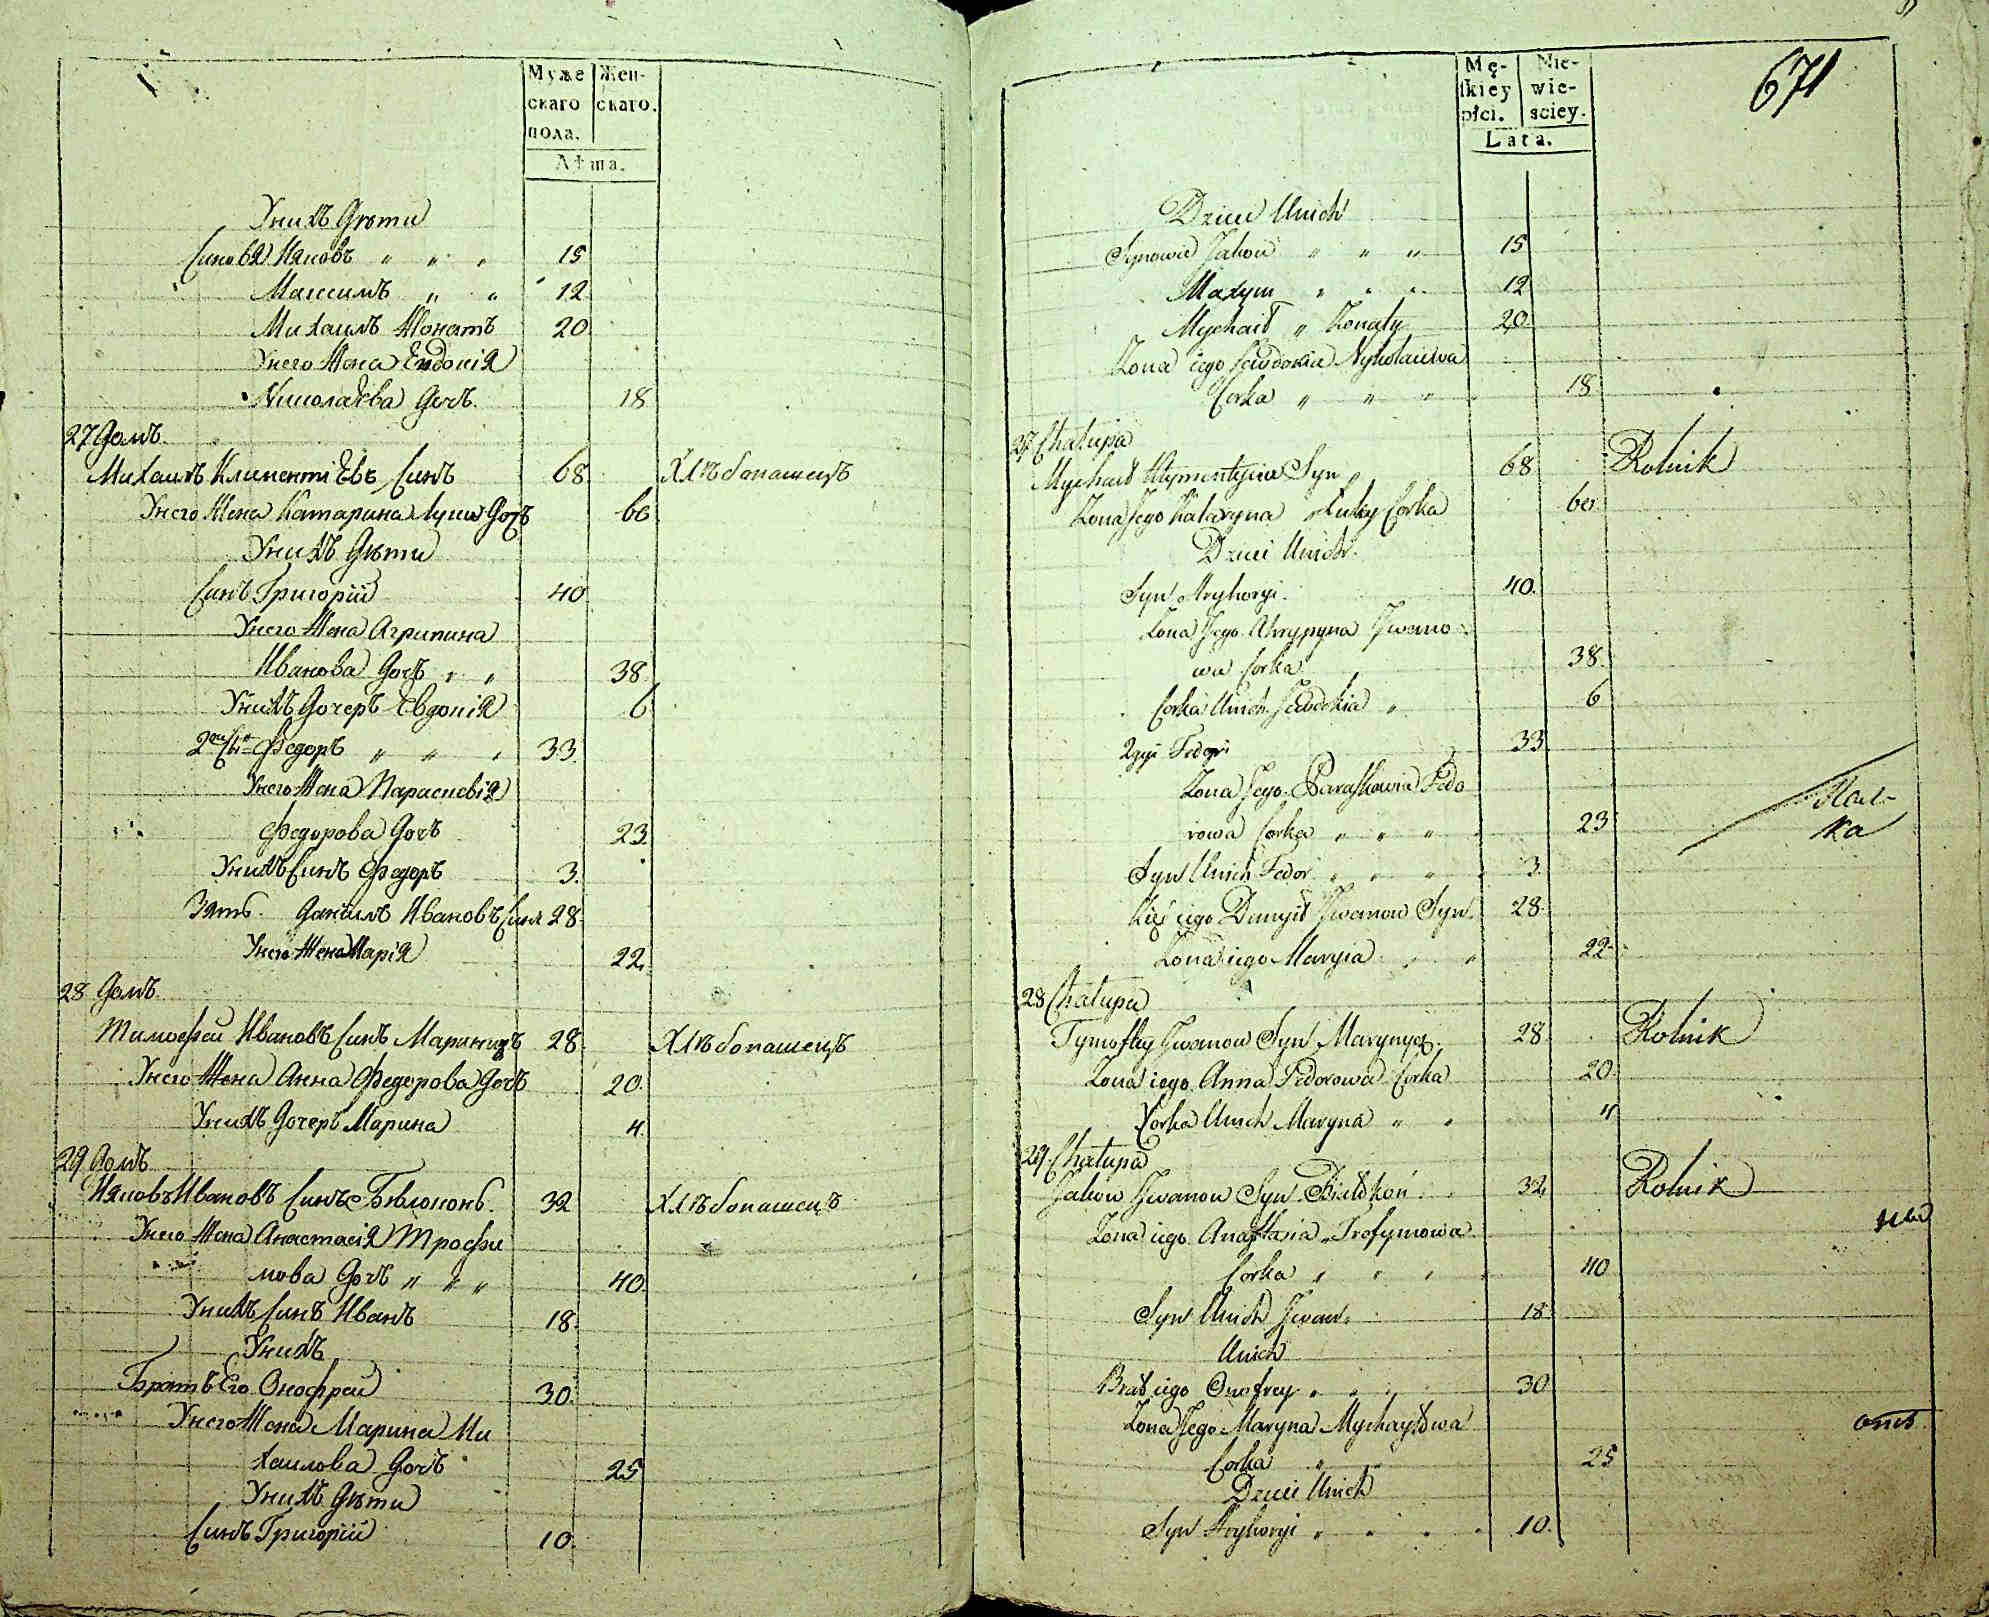 Муже
скаго
пола.
Жен-
скаго.
Лѣта.
Унихъ Дѣти
Синовя Ияковъ " " " 15
Максимъ " " 12
Михаилъ Жонатъ 20
Унего Жена Евдокія
Николаѣва Дочъ. 18
27 Домъ
Михаилъ Климентіѣвъ Синъ 68 Хлѣбопашецъ
Унего Жена Катарина Луки Дочъ 60
Унихъ Дѣти
Синъ Григорій 40
Унего Жена Агрипина
Иванова Дочъ " " 38
Унихъ Дочеръ Евдокія 6
Федоръ " " " 33
Унего Жена Параскевія
Федорова Дочъ 23
Унихъ Синъ Федоръ 3.
Зять Данилъ Ивановъ Синъ 28
Унего Жена Марія 22
28 Домъ
Тимофей Ивановъ Синъ 28 Хлѣбопашецъ
Унего Жена Анна Федорова Дочъ 20
Унихъ Дочеръ Марина 4
29 Домъ
Ияковъ Ивановъ Синъ Бѣлоконь. 32 Хлѣбопашецъ
Унего Жена Анастасія Трофи
мова Дочъ " " " 40
Унихъ Синъ Иванъ 18.
Унихъ
Братъ Его Онофрей 30
Унего Жена Марина Ми
хаилова Дочъ 25
Унихъ Дѣти
Синъ Григорій 10.
Mę-
skiey
płci.
Nie-
wie-
sciey.
Lata.
671
Dzieci Unich
Synowie Jakow " " " 15
Maxym " " " 12
Mychaił " Żonaty 20
Żona iego Jewdokia Nykołaiwa
Corka " " " 18
27 Chałupa
Mychaił Klymentyiw Syn 68 Rolnik
Żona Jego Kataryna Łuky Corka 60
Dzieci Unich
Syn Hryhoryi 40.
Żona Jego Ahrypyna Jwano
wa Corka 38.
Corka Unich Jewdokia " 6
2gi Fedor 33
Żona Jego Paraskowia Fedo
rowa Corka " " " 23
Syn Unich Fedor " " " 3
Zięć iego Danyił Jwanow Syn 28
Żona iego Maryia " " 22
28 Chałupa
Tymoftey Jwanow Syn 28 Rolnik
Żona iego Anna Fedorowa Corka 20
Corka Unich Maryna " " 4
29 Chałupa
Jakow Jwanow Syn Białokoń 32 Rolnik
Żona iego Anastasia Trofymowa
Corka " " " 40
Syn Unich Jwan 18
Unich
Brat iego Onofrey " " " 30
Żona Jego Maryna Mychayłowa
Corka " 25
Dzieci Unich
Syn Hryhoryi " " " " 10.